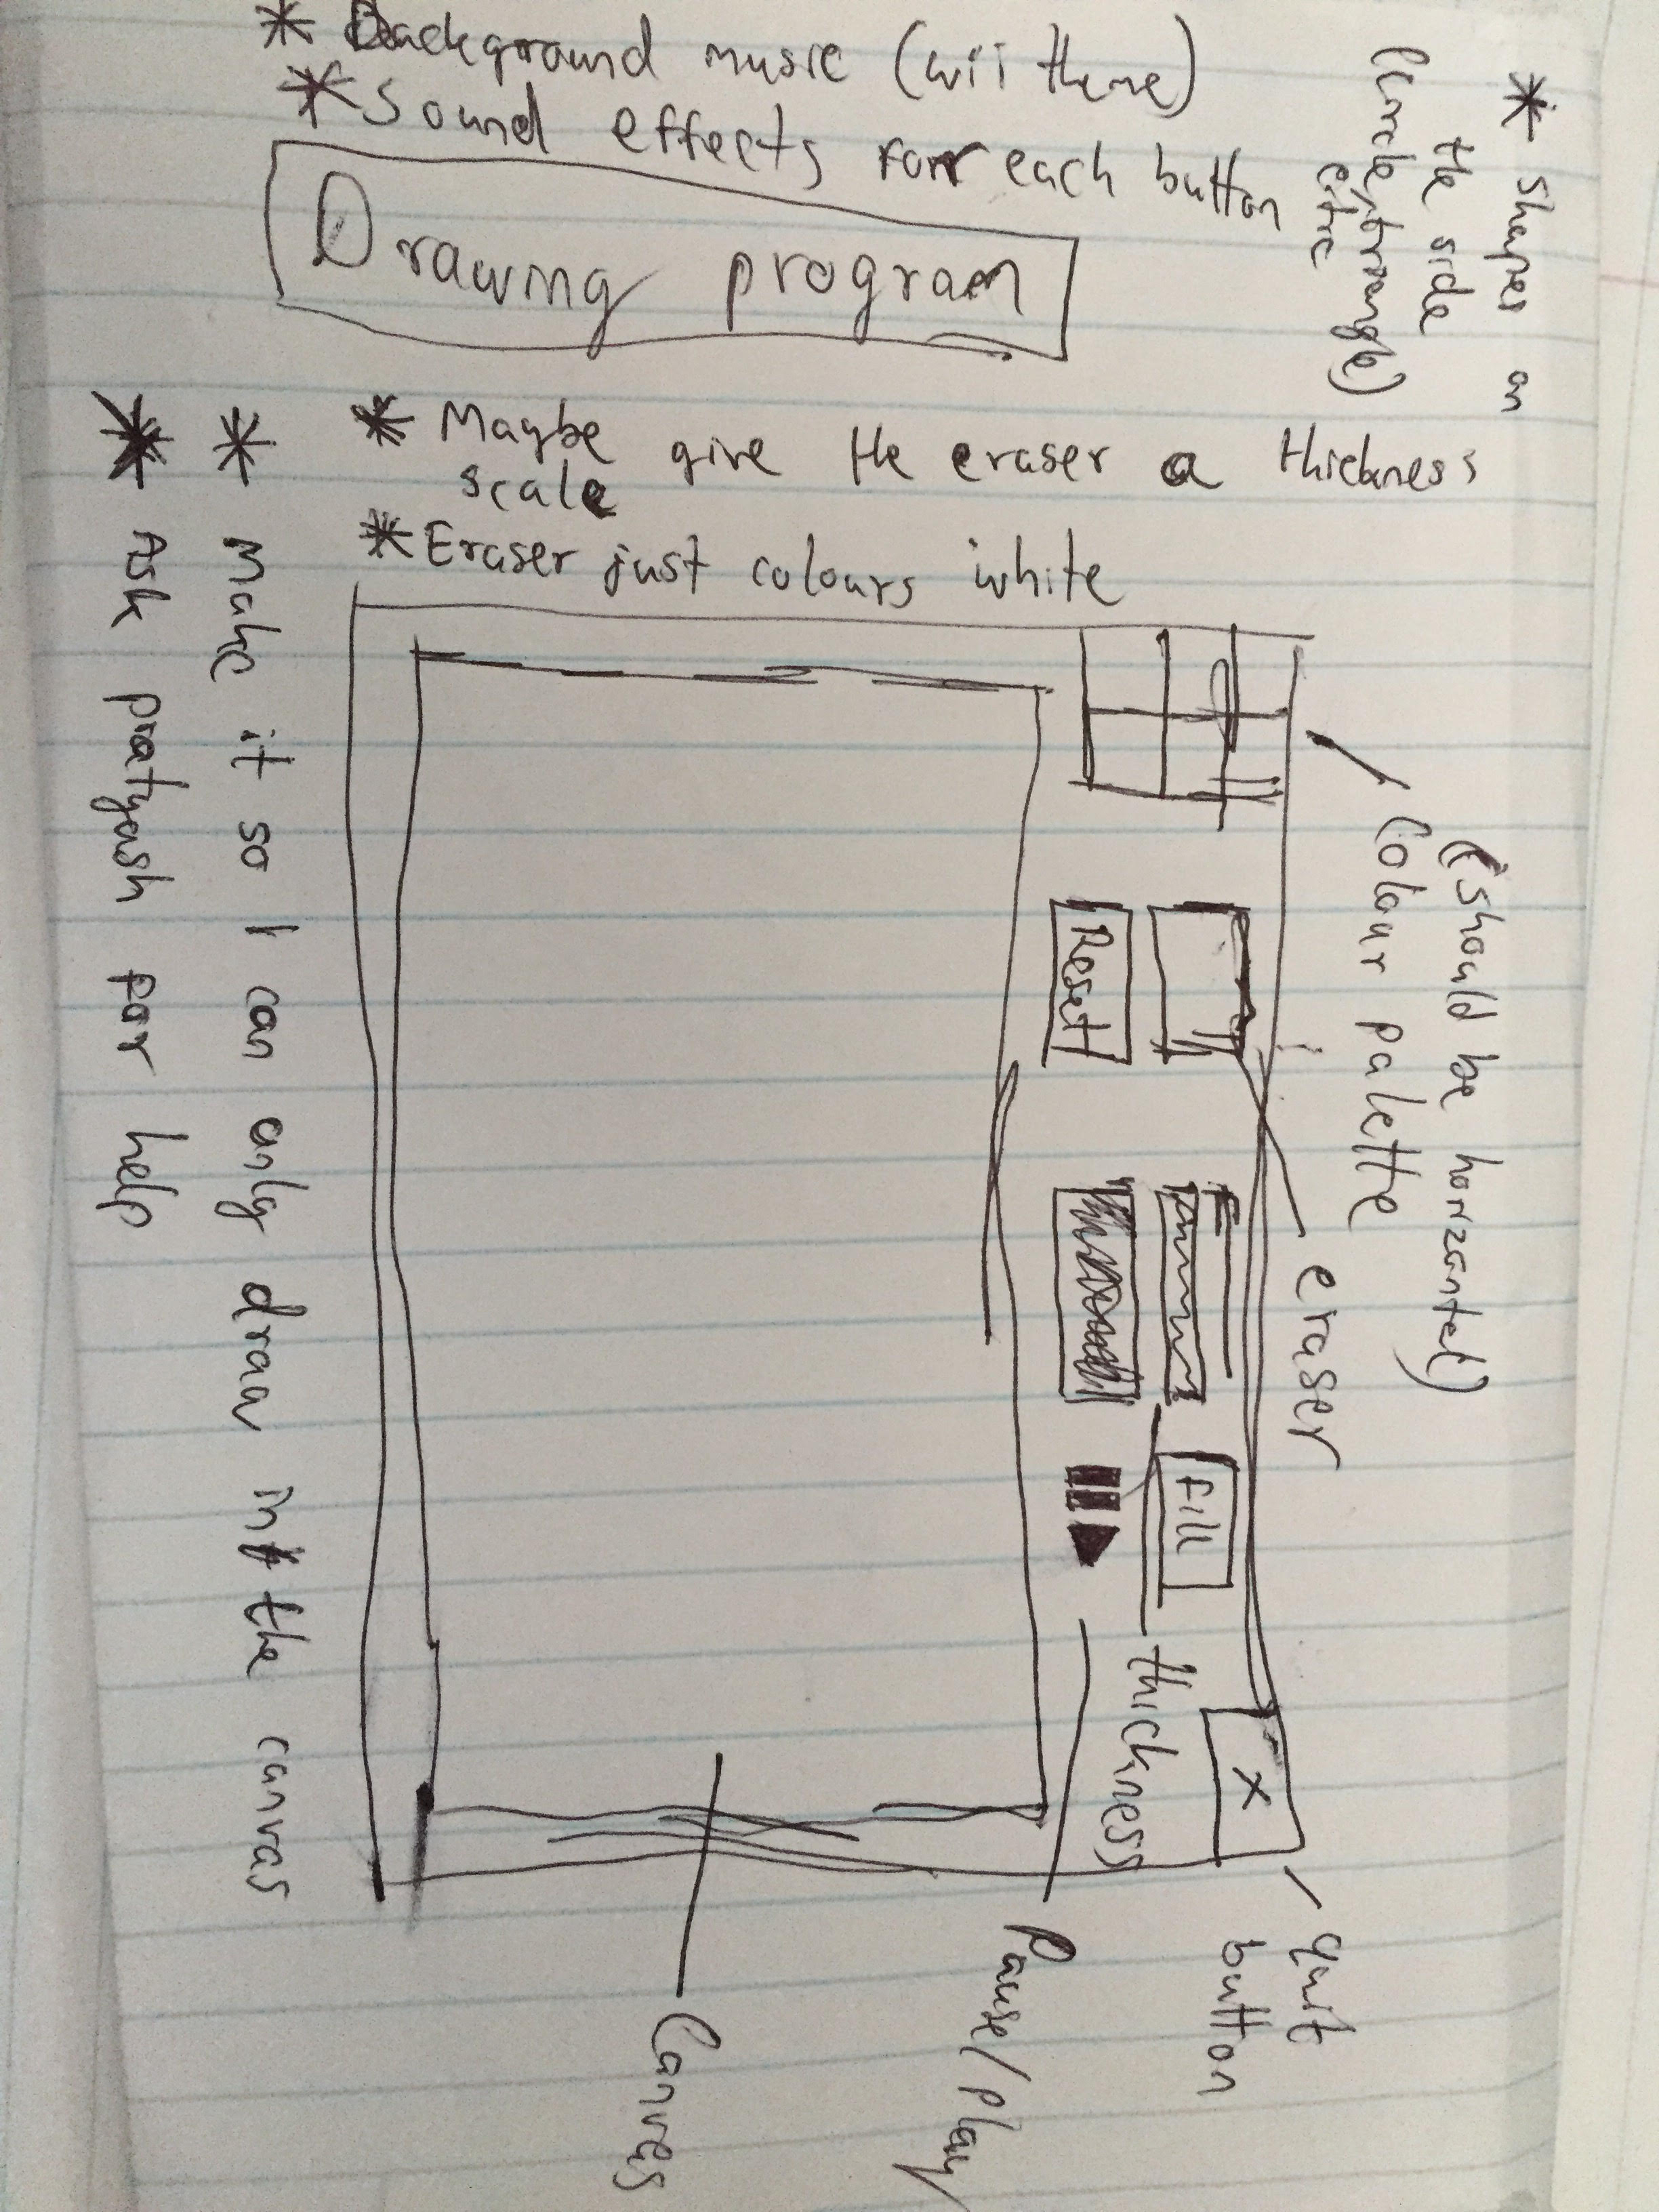 * Background music (wii theme)
* Sound effects for each button
Drawing program
* Shapes on
the side
(circle, triangle)
etc
* Maybe give the eraser a thickness
scale
* Eraser just colours white
(should be horizantel)
Colour palette
eraser
Reset
Fill
X
thickness
quit
button
Pause/play
Canves
* Make it so I can only draw in the canvas
* Ask pratyash for help